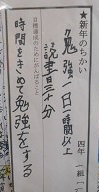 ★新年のちかい
四年 二組
勉強一日一時間以上
読書一日三十分
目標達成のためにがんばること
時間をきめて勉強をする